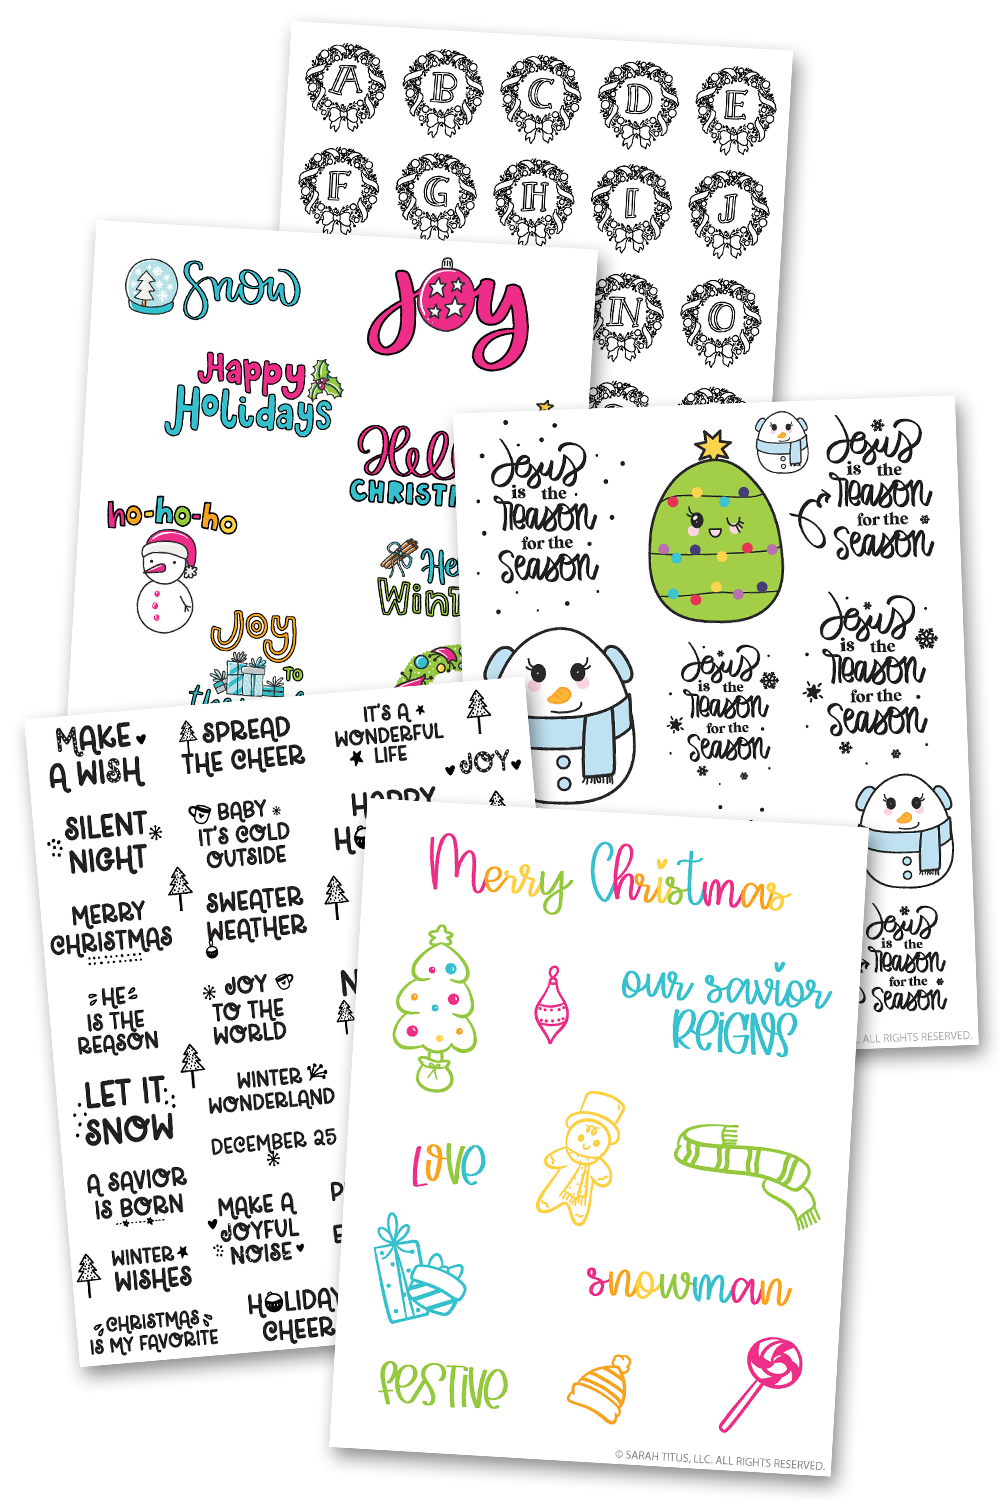 A B C D E
F G H I J
N O
Snow
Joy
Happy
Holidays
CHRISTM
ho-ho-ho
Joy
TO
Jesus
is the
Reason
for the
Season
Jesus
is the
Reason
for the
Season
Jesus
is the
Reason
for the
Season
Jesus
is the
Reason
for the
Season
Jesus
is the
Reason
for the
Season
ALL RIGHTS RESERVED.
MAKE
A WISH
SPREAD
THE CHEER
IT'S A
WONDERFUL
LIFE
JOY
SILENT
NIGHT
BABY
IT'S COLD
OUTSIDE
HAPPY
MERRY
CHRISTMAS
SWEATER
WEATHER
HE
IS THE
REASON
JOY
TO THE
WORLD
LET IT
SNOW
WINTER
WONDERLAND
DECEMBER 25
A SAVIOR
IS BORN
MAKE A
JOYFUL
NOISE
WINTER
WISHES
CHRISTMAS
IS MY FAVORITE
HOLIDAY
CHEER
Merry Christmas
our savior
REIGNS
LOVE
snowman
FESTIVE
© SARAH TITUS, LLC. ALL RIGHTS RESERVED.